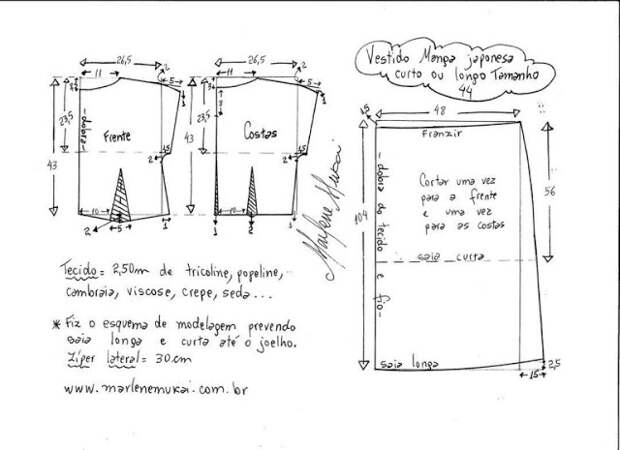 Vestido Manga japonesa
curto ou longo Tamanho
44
26,5
2
11
5
23,5
43
-dobra-
Frente
2
1,5
10
5
2
1
26,5
2
11
5
3
8
23,5
43
Costas
2
1,5
10
3
1
1
Marlene Mukai
48
1,5
Franzir
-dobra do tecido e fio-
104
56
Cortar uma vez
para a frente
e uma vez
para as costas
saia curta
saia longa
2,5
15
Tecido = 2,50m de tricoline, popeline,
cambraia, viscose, crepe, seda...
* Fiz o esquema de modelagem prevendo
saia longa e curta até o joelho.
Zíper lateral = 30cm
www.marlenemukai.com.br